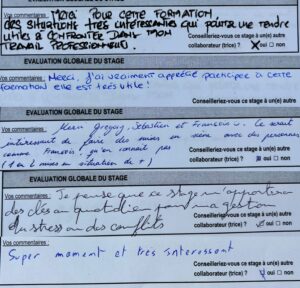 Vos commentaires : MERCI POUR CETTE FORMATION
DES SITUATIONS TRES INTERESSANTES QUI POURRA ME RENDRE
UTILES A CONFRONTER DANS MON
TRAVAIL PROFESSIONNEL.
Conseilleriez-vous ce stage à un(e) autre
collaborateur (trice) ? oui □ non
EVALUATION GLOBALE DU STAGE
Vos commentaires : Merci, j'ai vraiment apprécié participée à cette
formation elle est très utile !
Conseilleriez-vous ce stage à un(e) autre
collaborateur (trice) ? oui □ non
EVALUATION GLOBALE DU STAGE
Vos commentaires : Merci Gregory, Sébastien et François. Ce serait
intéressant de faire des mises en scène avec des personnes
comme François, qu'on connait pas
(1 ou 2 mises en situation de +)
Conseilleriez-vous ce stage à un(e) autre
collaborateur (trice) ? oui □ non
EVALUATION GLOBALE DU STAGE
Vos commentaires : Je pense que ce stage m'apportera
des clés au quotidien pour ma gestion
du stress ou des conflits
EVALUATION GLOBALE DU STAGE
Vos commentaires :
Super moment et très interessant
Conseilleriez-vous ce stage à un(e) autre
collaborateur (trice) ? oui □ non